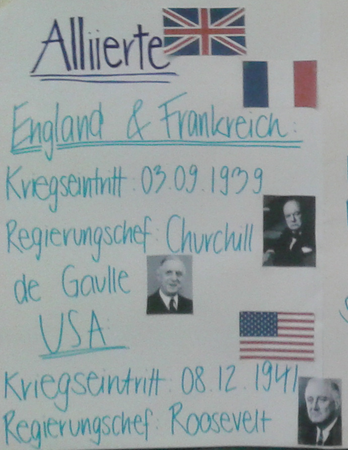 Alliierte
England & Frankreich:
Kriegseintritt: 03.09.1939
Regierungschef: Churchill
de Gaulle
USA
Kriegseintritt: 08.12.1941
Regierungschef: Roosevelt